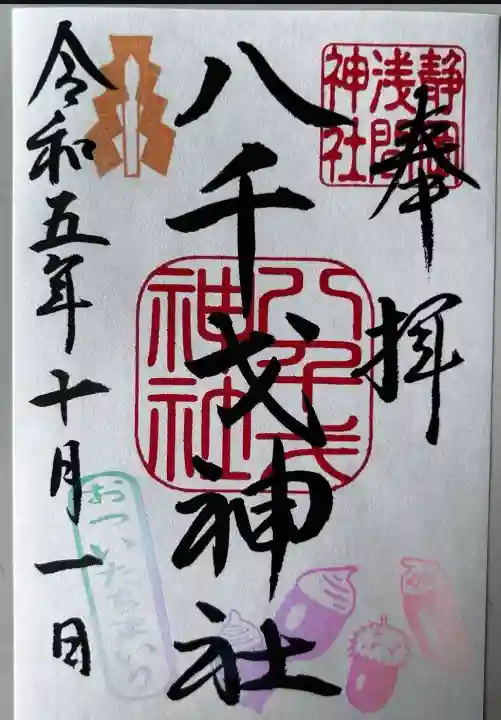 奉拝
静岡
浅間
神社
八千戈神社
八千戈
神社
令和五年十月一日
おついたちまいり